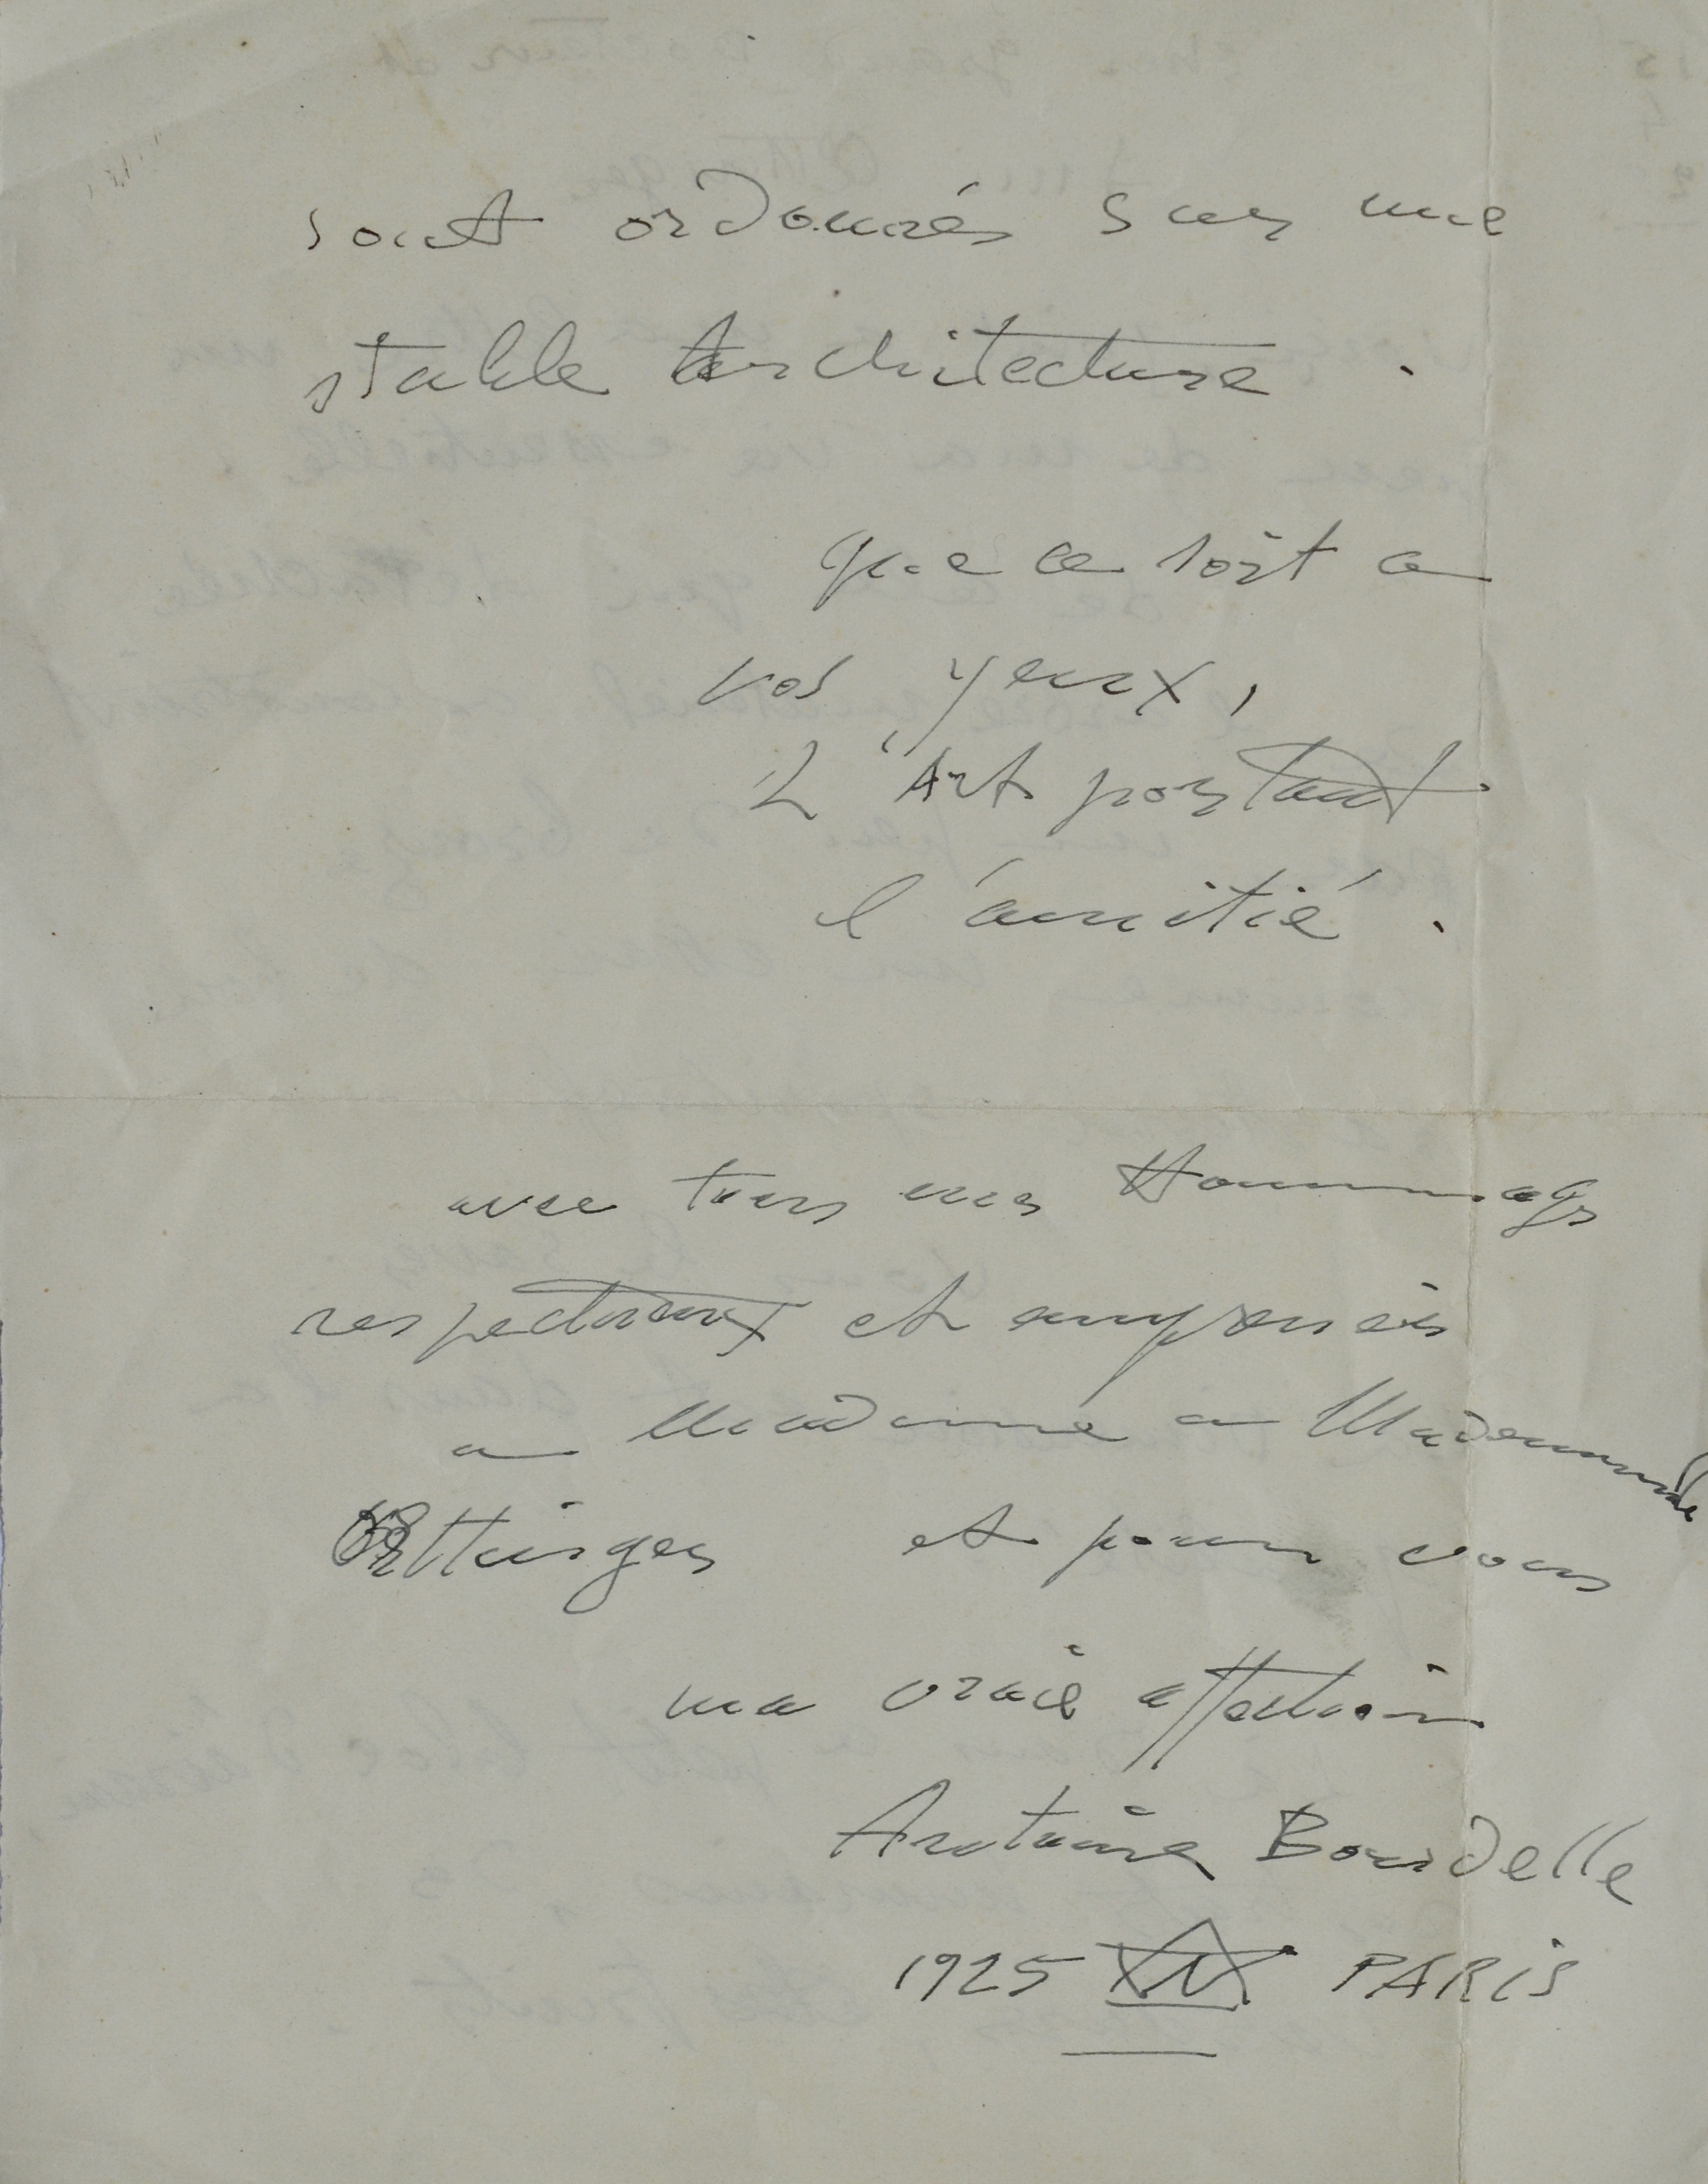 sont ordonnés sur une
stable Architecture .
que ce soit a
vos yeux,
L'Art portant
l'amitié .
avec tous mes Hommages
respectueux et empressés
a Madame a Mademoiselle
Ottinger et pour vous
ma vraie affection
Antoine Bourdelle
1925 PARIS